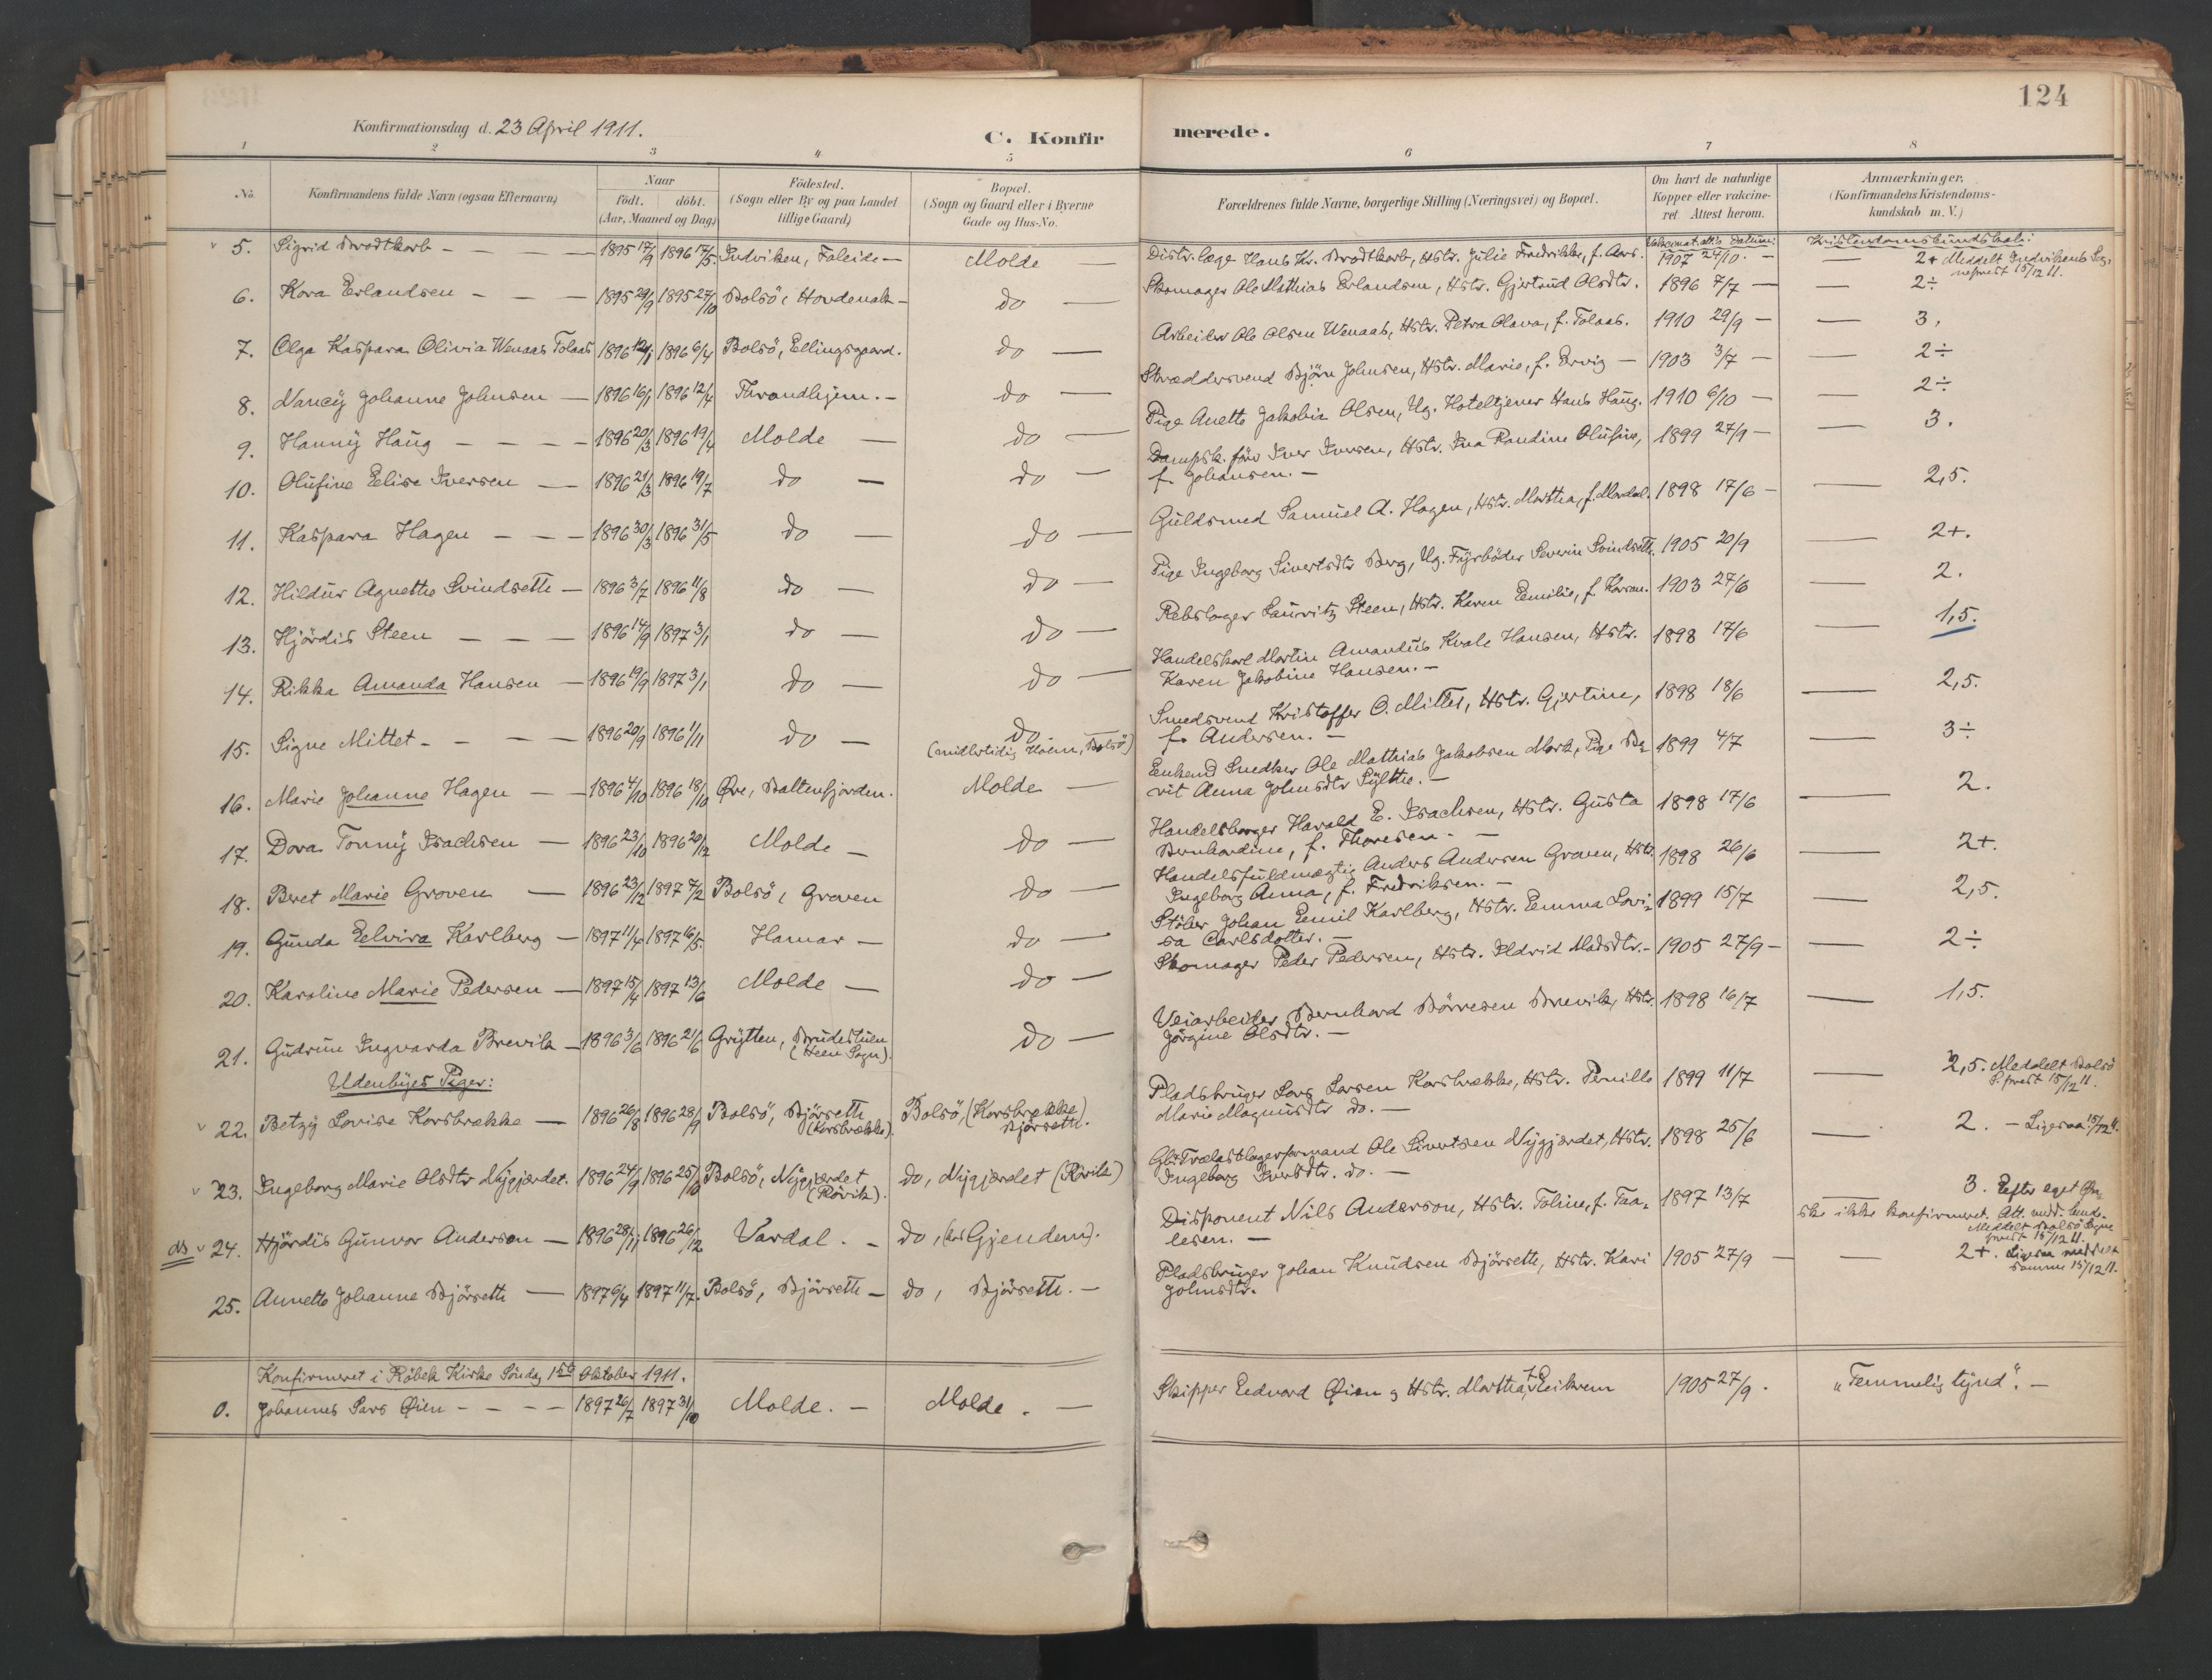 124
Konfirmationsdag d. 23 April 1911.
C. Konfirmerede.
1 2 3 4 5 6 7 8
No.
Konfirmandens fulde Navn (ogsaa Efternavn)
Naar
födt. döbt.
(Aar, Maaned og Dag)
Födested.
(Sogn eller By og paa Landet
tillige Gaard)
Bopæl.
(Sogn og Gaard eller i Byerne
Gade og Hus-No.
Forældrenes fulde Navne, borgerlige Stilling (Næringsvei) og Bopæl.
Om havt de naturlige
Kopper eller vakcine-
ret Attest herom.
Anmærkninger.
(Konfirmandens Kristendoms-
kundskab m. V.)
Vakcinat.att's Datum:
Kristendomskundskab:
5. Sigrid Brodtkorb - — — 1895 17/9 1896 17/5. Indviken, Faleide — Molde — Distr.læge Hans Kr. Brodtkorb, Hstr. Julie Fredrikke, f. Aars. 1907 24/10. — — 2+ Meddelt Indvikens Sog-
neprest 15/12 11.
6. Kora Erlandsen - — — 1895 29/9 1895 27/10 Bolsö, Hovdenak — do — Skomager Ole Mathias Erlandsen, Hstr. Gjertrud Olsdtr. 1896 7/7 — — 2÷
7. Olga Kaspara Olivia Wenaas Tolaas 1896 12/1 1896 6/4 Bolsö, Ellingsgaard. do — Arbeider Ole Olsen Wenaas, Hstr. Petra Olava, f. Tolaas. 1910 29/9 — — 3,
8. Nancy Johanne Johnsen — 1896 16/1 1896 12/4 Throndhjem. — do — Skræddersvend Björn Johnsen, Hstr. Marie, f. Ervig — 1903 3/7 — — 2÷
9. Hanny Haug - — — — 1896 20/3 1896 19/4 Molde — do — Pige Anette Jakobia Olsen, Ug. Hoteltjener Hans Haug. 1910 6/10 — — 2÷
10. Olufine Elise Iversen — 1896 21/3 1896 19/7 do — do — Dampsk.förer Iver Iversen, Hstr. Ina Randine Olufine,
f. Johansen. — 1899 27/9 — — 3.
11. Kaspara Hagen - — — 1896 30/3 1896 31/5 do — do — Guldsmed Samuel A. Hagen, Hstr. Martha, f. Mordal. 1898 17/6 — — 2,5.
12. Hildur Agnethe Svindseth — 1896 3/7 1896 11/8 do — do — Pige Ingeborg Sivertsdtr Berg, Ug. Fyrböder Severin Svindseth. 1905 20/9 — 2+.
13. Hjördis Steen - — — 1896 14/9 1897 3/1 do — do — Rebslager Lauritz Steen, Hstr. Karen Emilie, 1903 27/6 — 2.
14. Rikka Amanda Hansen — 1896 19/9 1897 3/1 do — do — Handelskarl Martin Amandus Kvale Hansen, Hstr.
Karen Jakobine Hansen. — 1898 17/6 — 1,5.
15. Signe Mittet - — — 1896 20/9 1896 1/11 do — do.
(midlertidig Holm, Bolsö) Smedsvend Kristoffer O. Mittet, Hstr. Gjertine,
f. Andersen. — 1898 18/6 — 2,5.
16. Marie Johanne Hagen — — 1896 4/10 1896 18/10 Øre, Battenfjorden. Molde — Enkemd Snedker Ole Mathias Jakobsen Mork, Pige Be-
rit Anna Johnsdtr Sylthe. — 1899 4/7 — 3÷
17. Dora Tonny Isachsen — 1896 23/10 1896 20/12 Molde — do — Handelsborger Harald E. Isachsen, Hstr. Gusta
Bernhardine, f. Thoresen. — 1898 17/6 — 2.
18. Beret Marie Groven — 1896 23/12 1897 7/2 Bolsö, Groven do — Handelsfuldmægtig Anders Andersen Groven, Hstr.
Ingeborg Anna, f. Fredriksen. — 1898 26/6 — 2+.
19. Gunda Elvira Karlberg — 1897 11/4 1897 16/5. Hamar — do — Stöber Johan Emil Karlberg, Hstr. Emma Lovi-
sa Carlsdotter. — 1899 15/7 — 2,5.
20. Karoline Marie Pedersen — 1897 15/4 1897 13/6 Molde — do — Skomager Peder Pedersen, Hstr. Ildrid Madsdtr. — 1905 27/9 — — 2÷
21. Gudrun Ingvarda Brevik — 1896 3/6 1896 21/6 Grytten, Brudestuen
(Heen Sogn). do — Veiarbeider Bernhard Börresen Brevik, Hstr.
Jörgine Olsdtr. — 1898 16/7 — 1,5.
Udenbyes Piger:
22. Betzy Lovise Korsbrekke — 1896 26/8 1896 28/9 Bolsö, Björseth
(Korsbrekke). Bolsö, (Korsbrekke)
Björseth. Pladsbruger Lars Larsen Korsbrekke, Hstr. Pernille
Marie Magnusdtr do. — 1899 11/7 — 2,5. Meddelt Bolsö
S.prest 15/12 11.
23. Ingeborg Marie Olsdtr Nygjærdet. 1896 24/9 1896 25/10 Bolsö, Nygjærdet
(Rörvik). do, Nygjærdet (Rörvik) Trælastlagerformand Ole Sivertsen Nygjærdet, Hstr.
Ingeborg Iversdtr. do. — 1898 25/6 — 2. — Ligesaa 15/12 11.
ds 24. Hjördis Gunvor Anderson — 1896 28/11 1896 26/12 Vardal. — do, Gjendem). Disponent Nils Anderson, Hstr. Toline, f. Taa-
lesen. — 1897 13/7 — 3. Efter eget Øn-
ske ikke konfirmeret. Att. medd. hende.
Meddelt Bolsö Sogne
prest 15/12 11.
25. Annette Johanne Björseth — 1897 6/4 1897 11/7. Bolsö, Björseth — do, Björseth. — Pladsbruger Johan Knudsen Björseth, Hstr. Kari
Johnsdtr. 1905 27/9 — — 2+. Ligesaa meddelt
samme 15/12 11.
Konfirmeret i Röbek Kirke Söndag 1ste Oktober 1911.
0. Johannes Lars Øien - — — — 1897 26/7 1897 31/10 Molde. — Molde. — Skipper Edvard Øien og Hstr. Martha, f. Eikrem 1905 27/9. "Temmelig tynd". —